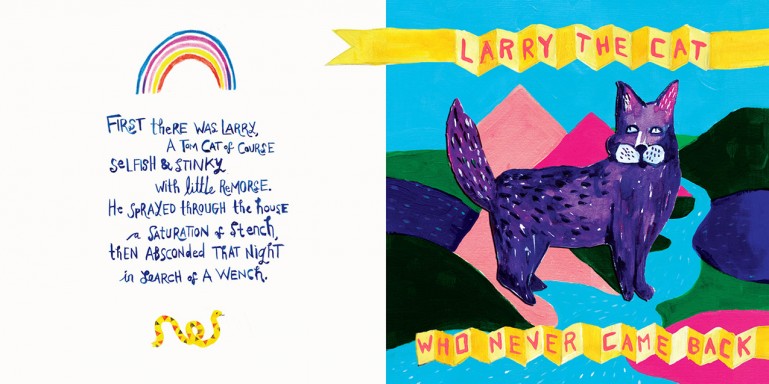 FIRST theRE WAS LARRY,
A Tom CAT of COURSE
SELFISH & STINKY
with little ReMORSE.
He SPRAYED tHROUGH the houSE
a SATURATION oF Stench,
tHEN ABSCONDED THAT NigHT
in SEARCH oF A WENCH.
LARRY THE CAT
WHO NEVER CAME BACK